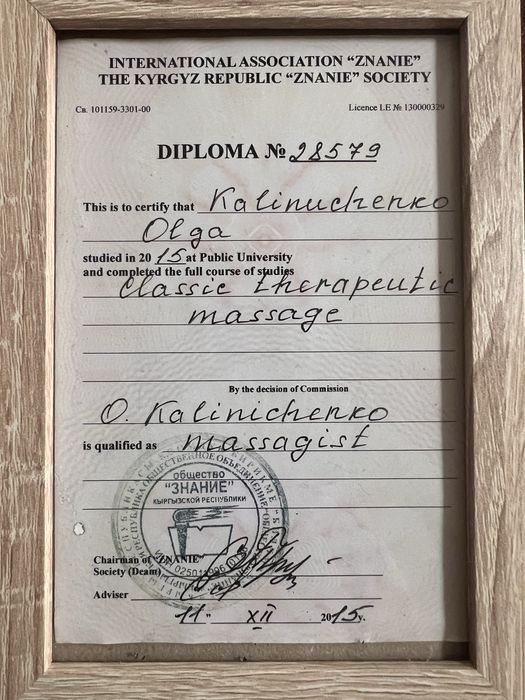 INTERNATIONAL ASSOCIATION “ZNANIE”
THE KYRGYZ REPUBLIC “ZNANIE” SOCIETY
Св. 101159-3301-00 Licence LE № 130000329
DIPLOMA № 28579
This is to certify that Kalinuchenko
Olga
studied in 20 15 at Public University
and completed the full course of studies
Classic therapeutic
massage
By the decision of Commission
O. Kalinichenko
is qualified as massagist
общество
"ЗНАНИЕ"
КЫРГЫЗСКОЙ РЕСПУБЛИКИ
Chairman of "ZNANIE"
Society (Deam)
Adviser
11 " XII 2015y.